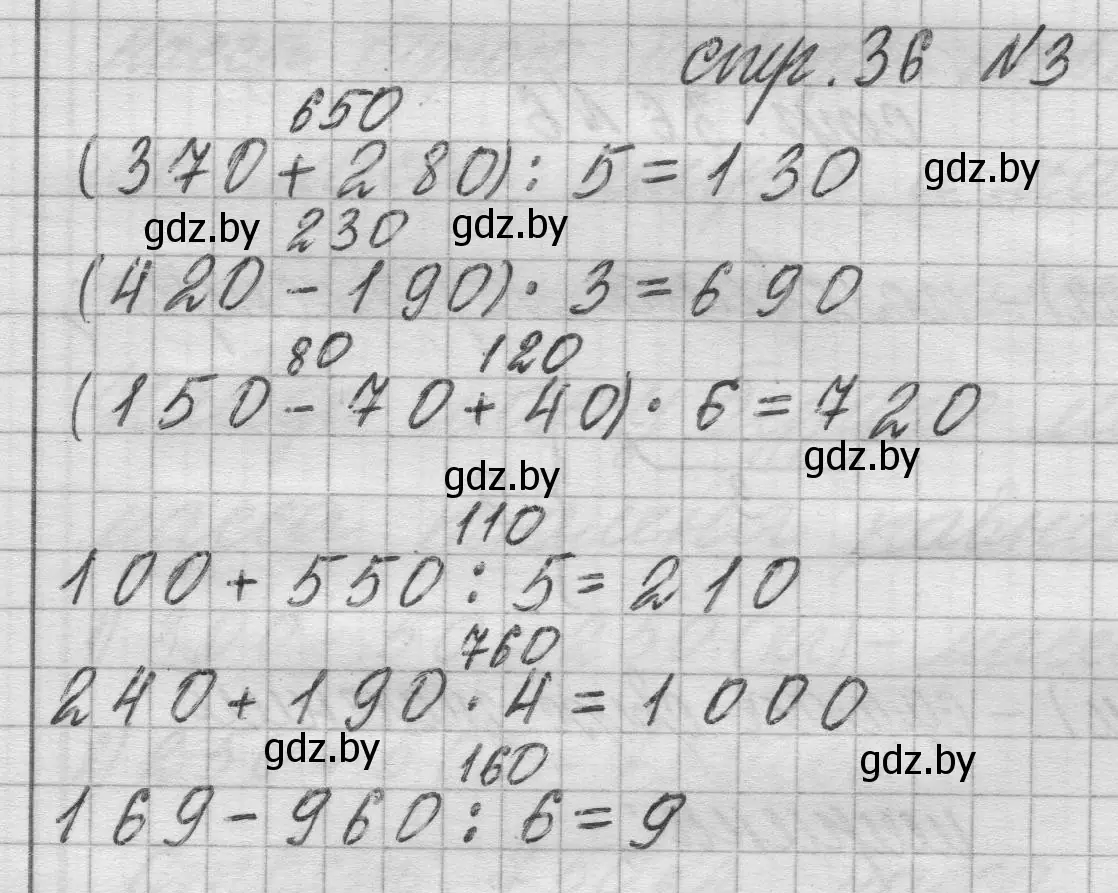 стр. 36 №3
650
(370+280):5=130 gdz.by
gdz.by 230 gdz.by
(420-190)·3=690
80 120
(150-70+40)·6=720
gdz.by gdz.by
110
100+550:5=210
760
240+190·4=1000
gdz.by 160 gdz.by
169-960:6=9